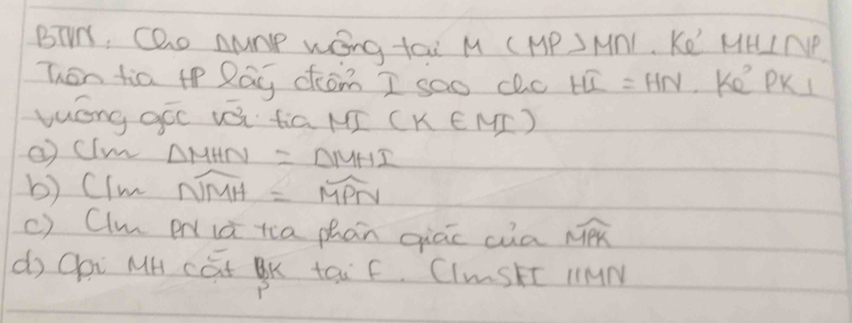 BTVN. Cho ΔMNP vuông tại M (MP > MN). Kẻ MH⊥NP.
Trên tia HP lấy điểm I sao cho HI = HN. Kẻ PK⊥
vuông góc với tia MI (K ∈ MI)
a) C/m ΔMHN = ΔMHI
b) C/m NMH = MPN
c) C/m PN là tia phân giác của MPK
d) Gọi MH cắt PK tại E. C/m EI // MN